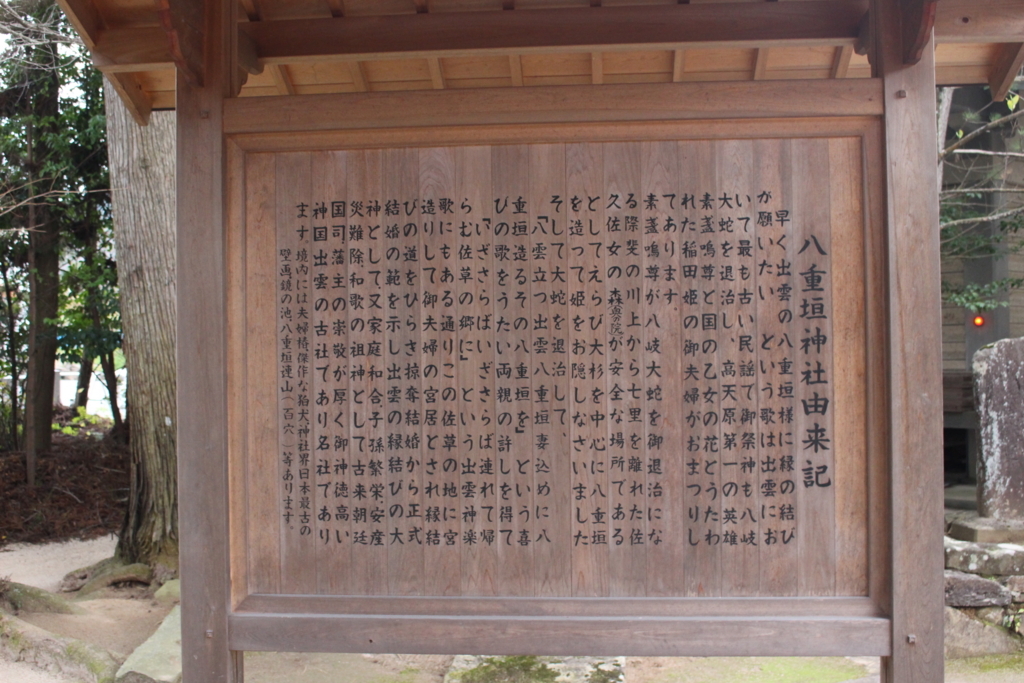 八重垣神社由来記
早く出雲の八重垣様に縁の結び
が願いたい という歌は出雲にお
いて最も古い民謡で御祭神も八岐
大蛇を退治し、高天原第一の英雄
素盞嗚尊と国の乙女の花とうたわ
れた稲田姫の御夫婦がおまつりし
てあります。
素盞嗚尊が八岐大蛇を御退治にな
る際斐の川上から七里を離れた佐
久佐女の森(奥の院)が安全な場所である
としてえらび大杉を中心に八重垣
を造って姫をお隠しなさいました
そして大蛇を退治して、
「八雲立つ出雲八重垣妻込めに八
重垣造るその八重垣を」という喜
びの歌をうたい両親の許しを得て
「いざさらばいざさらば連れて帰
らむ佐草の郷に」という出雲神楽
歌にもある通りこの佐草の地に宮
造りして御夫婦の宮居とされ縁結
びの道をひらき掠奪結婚から正式
結婚の範を示し出雲の縁結びの大
神として、又家庭和合子孫繁栄、安産
災難除和歌の祖神として古来朝廷
国司、藩主の崇敬が厚く御神徳高い
神国出雲の古社であり名社であり
ます。境内には夫婦椿、傑作な狛犬、神社界日本最古の
壁画、鏡の池、八重垣連山(百穴)等あります。